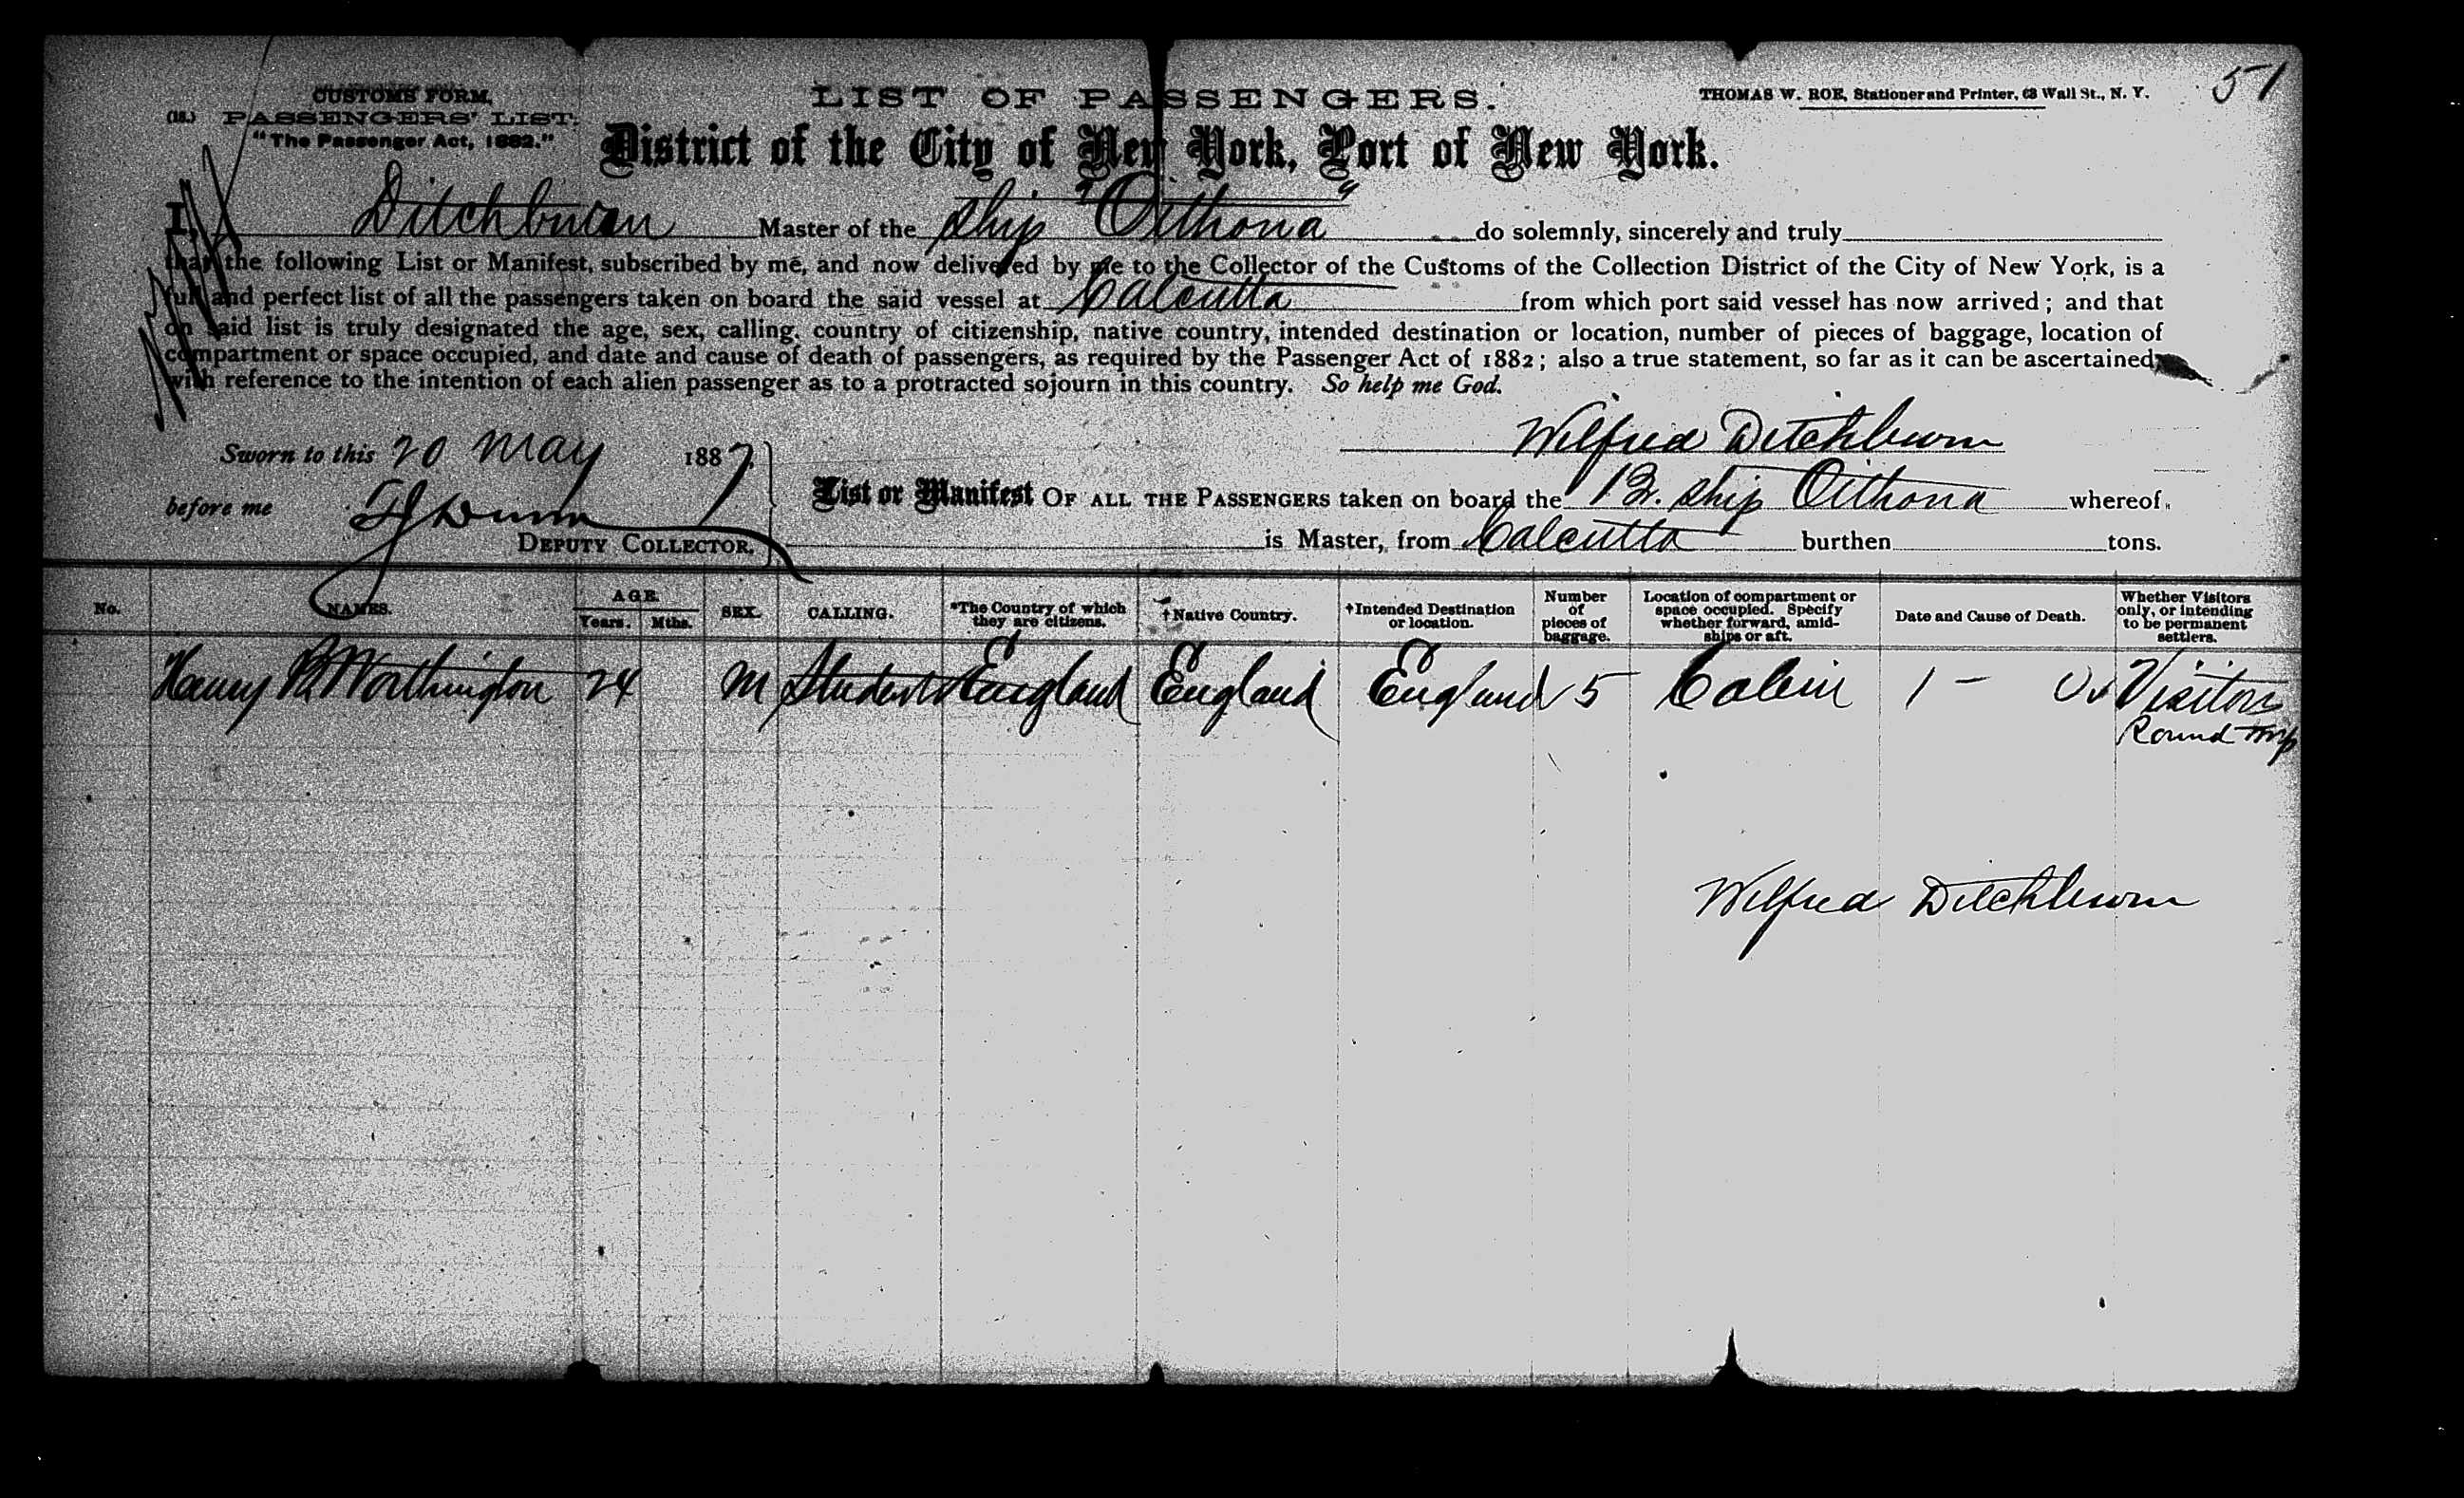 51
CUSTOMS FORM.
LIST OF PASSENGERS.
THOMAS W. ROE, Stationer and Printer, 63 Wall St., N. Y.
(18.) PASSENGERS' LIST.
"The Passenger Act, 1882."
District of the City of New York, Port of New York.
I, Ditchburn Master of the ship "Oithona" do solemnly, sincerely and truly
that the following List or Manifest, subscribed by me, and now delivered by me to the Collector of the Customs of the Collection District of the City of New York, is a
full and perfect list of all the passengers taken on board the said vessel at Calcutta from which port said vessel has now arrived; and that
on said list is truly designated the age, sex, calling, country of citizenship, native country, intended destination or location, number of pieces of baggage, location of
compartment or space occupied, and date and cause of death of passengers, as required by the Passenger Act of 1882; also a true statement, so far as it can be ascertained,
with reference to the intention of each alien passenger as to a protracted sojourn in this country. So help me God.
Wilfred Ditchburn
Sworn to this 20 May 1887.
before me Dunn
DEPUTY COLLECTOR.
List or Manifest OF ALL THE PASSENGERS taken on board the Br. ship Oithona whereof
is Master, from Calcutta burthen tons.
No. NAMES. AGE. Years. Mths. SEX. CALLING. *The Country of which they are citizens. †Native Country. †Intended Destination or location. Number of pieces of baggage. Location of compartment or space occupied. Specify whether forward, amidships or aft. Date and Cause of Death. Whether Visitors only, or intending to be permanent settlers.
Henry R Worthington 24 M Student England England England 5 Cabin 1 – Visitor
Round trip
Wilfred Ditchburn